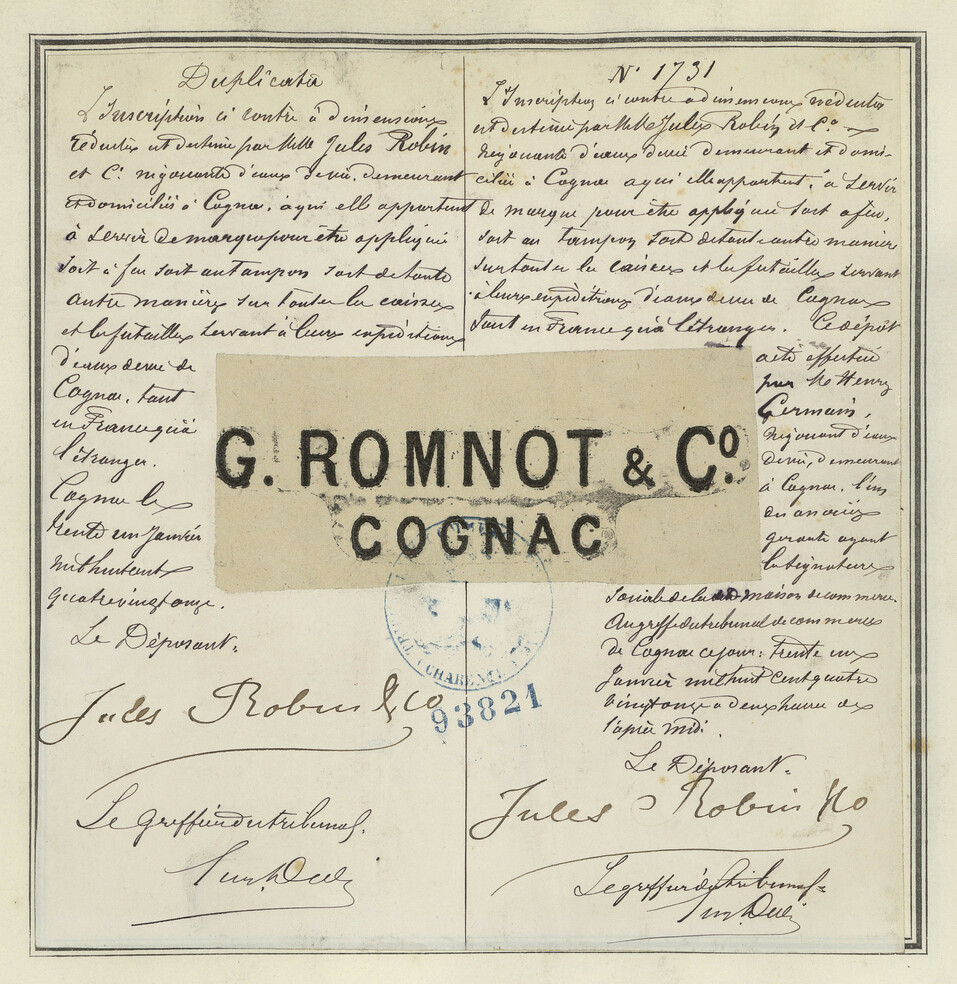 Duplicata
L'Inscription ci contre à dimensions
réduites est destinée par MM. Jules Robin
et Cie négociants d'eaux de vie, demeurant
et domiciliés à Cognac, à qui elle appartient
à servir de marque pour être appliquée
soit à feu soit au tampon soit de toute
autre manière sur toutes les caisses
et les futailles servant à leurs expéditions
d'eaux de vie de
Cognac, tant
en France qu'à
l'étranger.
Cognac le
trente un Janvier
mil huit cent
quatre vingt onze.
Le Déposant.
Jules Robin & Co
Le greffier du tribunal.
N° 1731
L'Inscription ci contre à dimensions réduites
est destinée par MM. Jules Robin et Co
négociants d'eaux de vie demeurant et domi-
ciliés à Cognac a qui elle appartient, à servir
de marque pour être appliquée soit à feu,
soit au tampon soit de toute autre manière
sur toutes les caisses et les futailles servant
à leurs expéditions d'eaux de vie de Cognac
tant en France qu'à l'étranger. Ce dépôt
a été effectué
par M. Henry
Germain,
négociant d'eaux
de vie, demeurant
à Cognac, l'un
des associés
gérants ayant
la signature
sociale de la maison de commerce.
Au greffe du tribunal de commerce
de Cognac ce jour: Trente un
Janvier mil huit cent quatre
vingt onze à deux heures de
l'après midi.
Le Déposant.
Jules Robin & Co
Le greffier du tribunal
G. ROMNOT & Co.
COGNAC
CHARENTE
93821